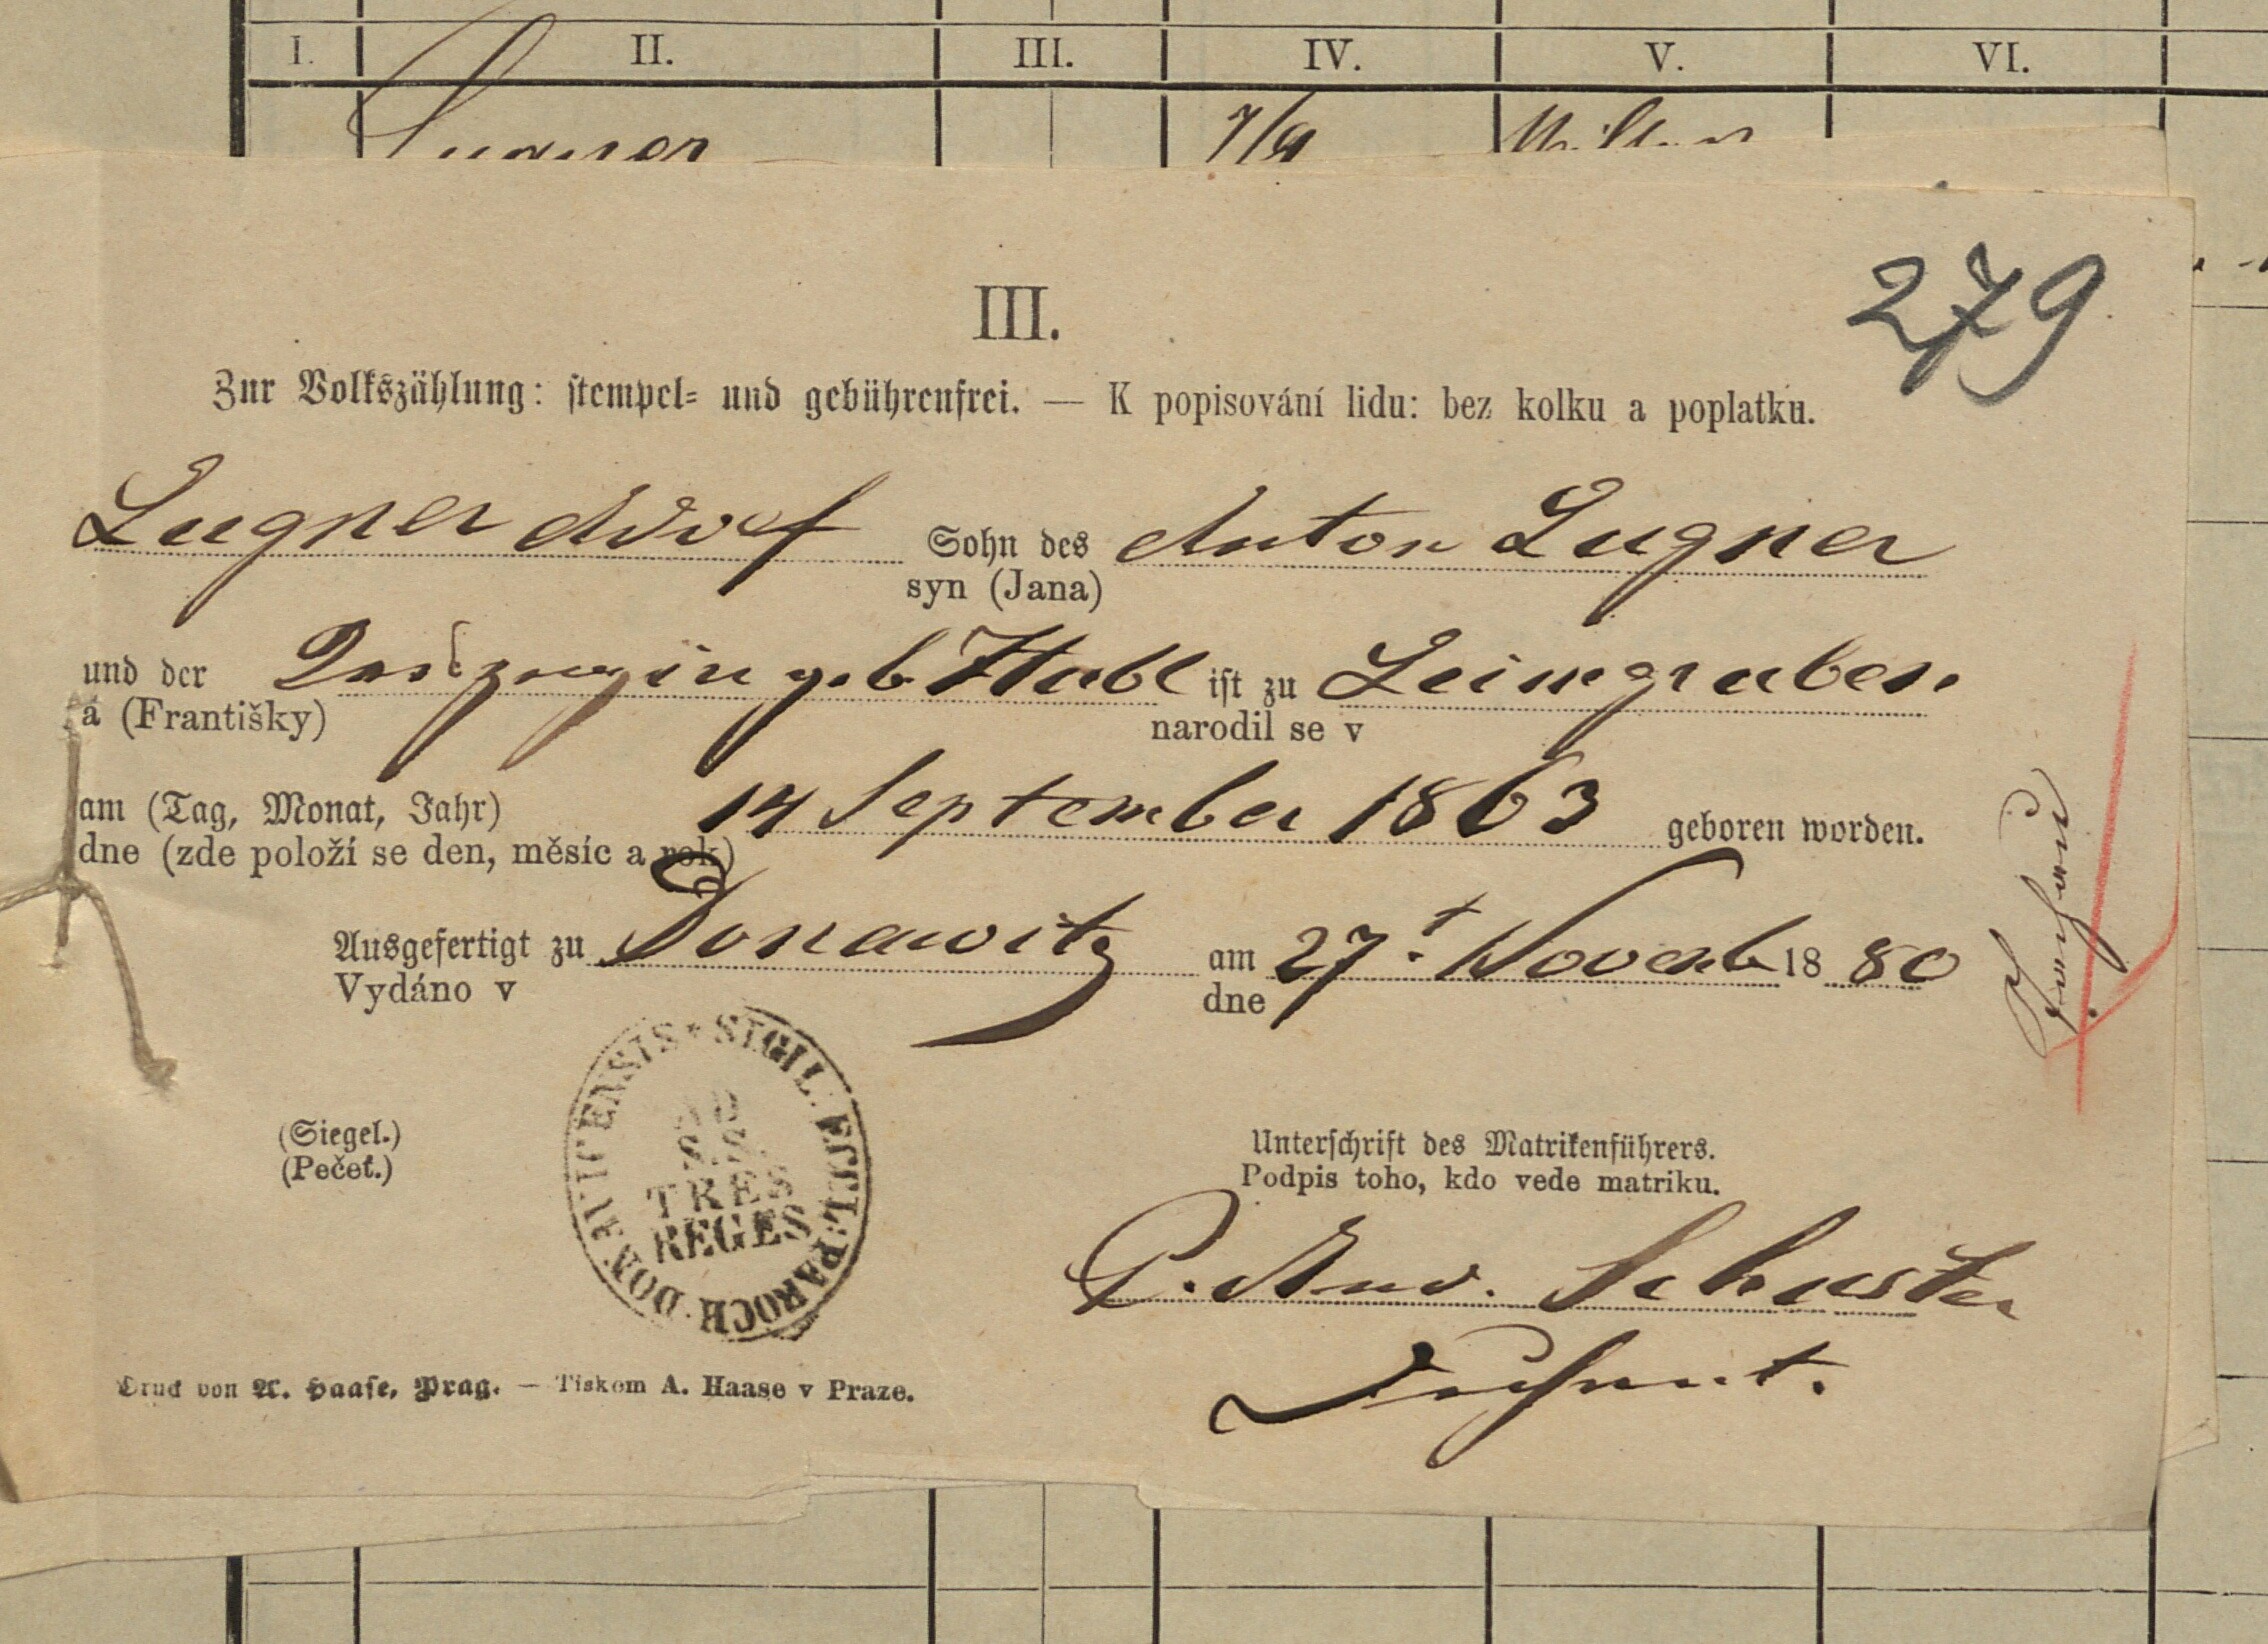 I. II. III. IV. V. VI.
III.
279
Zur Volkszählung: stempel- und gebührenfrei. — K popisování lidu: bez kolku a poplatku.
Lugner Adolf Sohn des Anton Lugner
syn (Jana)
und der geb Habl ist zu Leimgruben
a (Františky) narodil se v
am (Tag, Monat, Jahr) 14 September 1863 geboren worden.
dne (zde položí se den, měsíc a rok)
Ausgefertigt zu Donawitz am 27t Novemb 1880
Vydáno v dne
SIGIL. ECCL. PAROCH. DONAVITENSIS
AD
S.S.
TRES
REGES
(Siegel.)
(Pečeť.)
Unterschrift des Matrikenführers.
Podpis toho, kdo vede matriku.
P. And. Schuster
Dechant.
Druck von A. Haase, Prag. — Tiskem A. Haase v Praze.